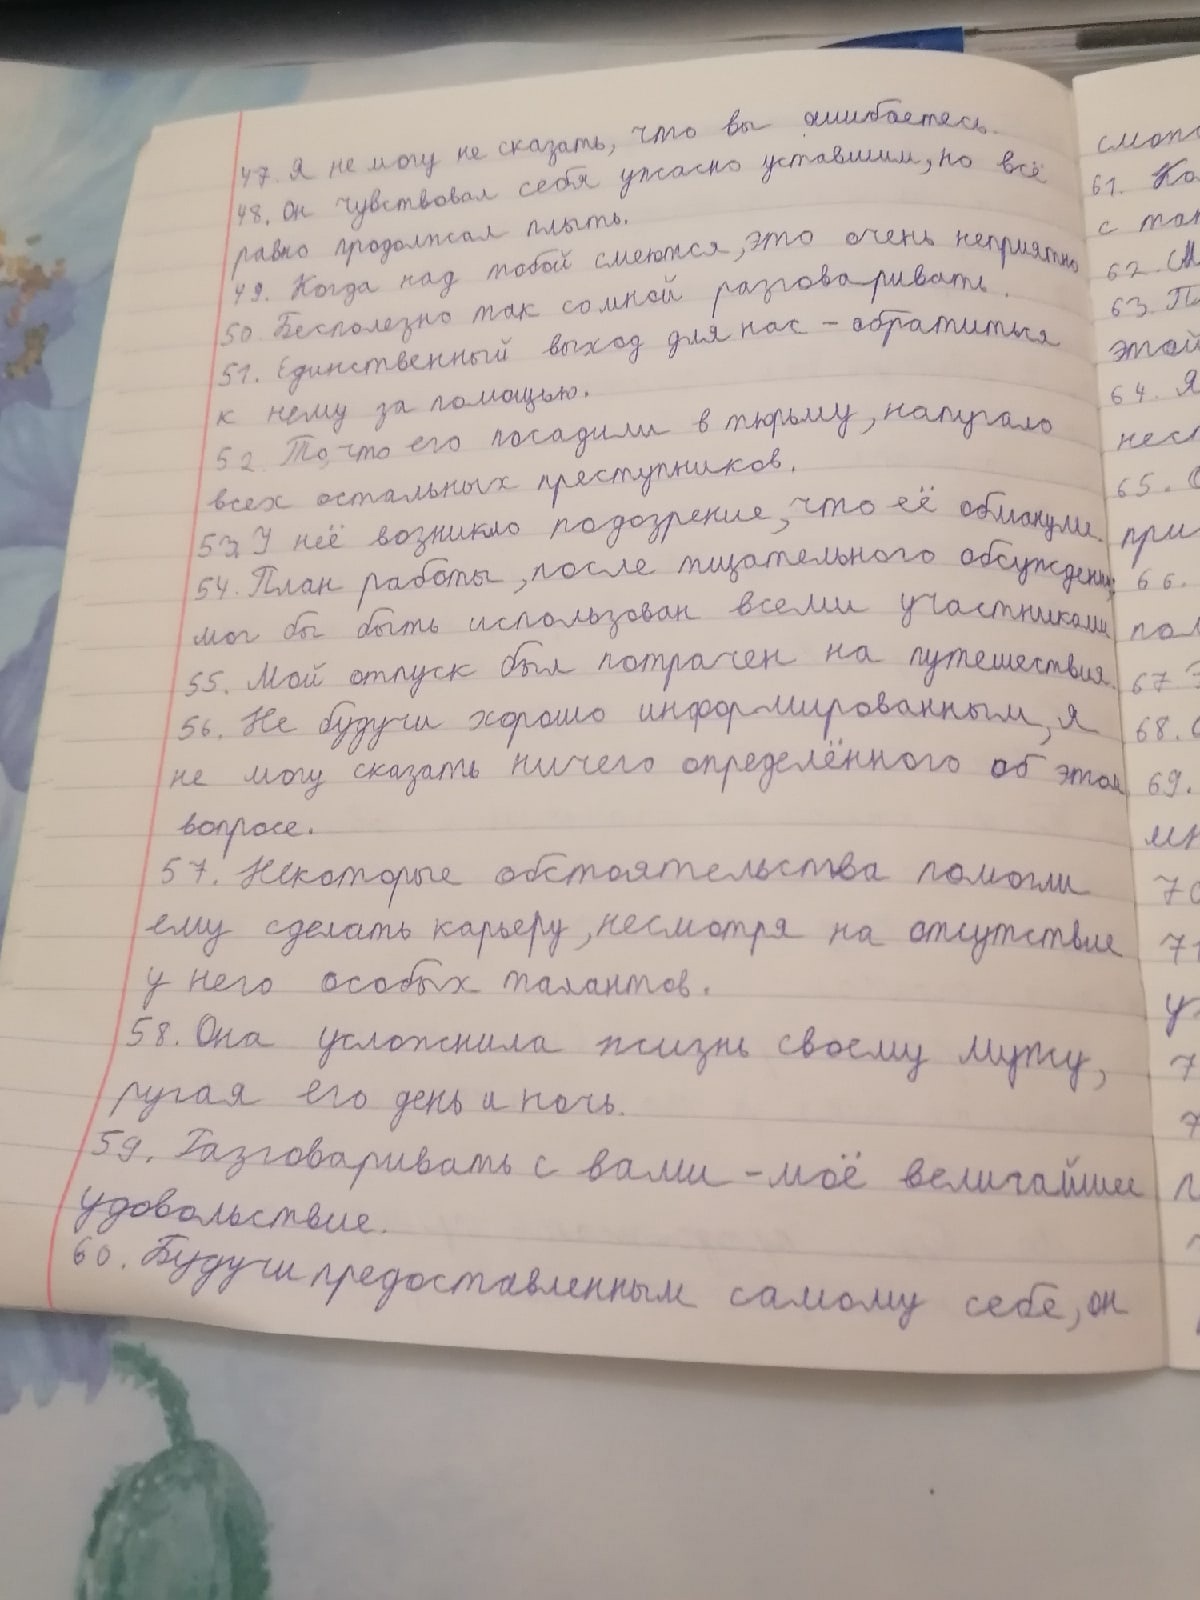 47. Я не могу не сказать, что вы ошибаетесь.
48. Он чувствовал себя ужасно уставшим, но всё
равно продолжал плыть.
49. Когда над тобой смеются, это очень неприятно
50. Бесполезно так со мной разговаривать.
51. Единственный выход для нас - обратиться
к нему за помощью.
52. То, что его посадили в тюрьму, напугало
всех остальных преступников.
53. У неё возникло подозрение, что её обманули.
54. План работы, после тщательного обсуждения,
мог бы быть использован всеми участниками
55. Мой отпуск был потрачен на путешествия.
56. Не будучи хорошо информированным, я
не могу сказать ничего определённого об этом
вопросе.
57. Некоторые обстоятельства помогли
ему сделать карьеру, несмотря на отсутствие
у него особых талантов.
58. Она усложнила жизнь своему мужу,
ругая его день и ночь.
59. Разговаривать с вами - моё величайшее
удовольствие.
60. Будучи предоставленным самому себе, он
61.
62.
63.
этой
64. Я
65.
66.
67
68.
69.